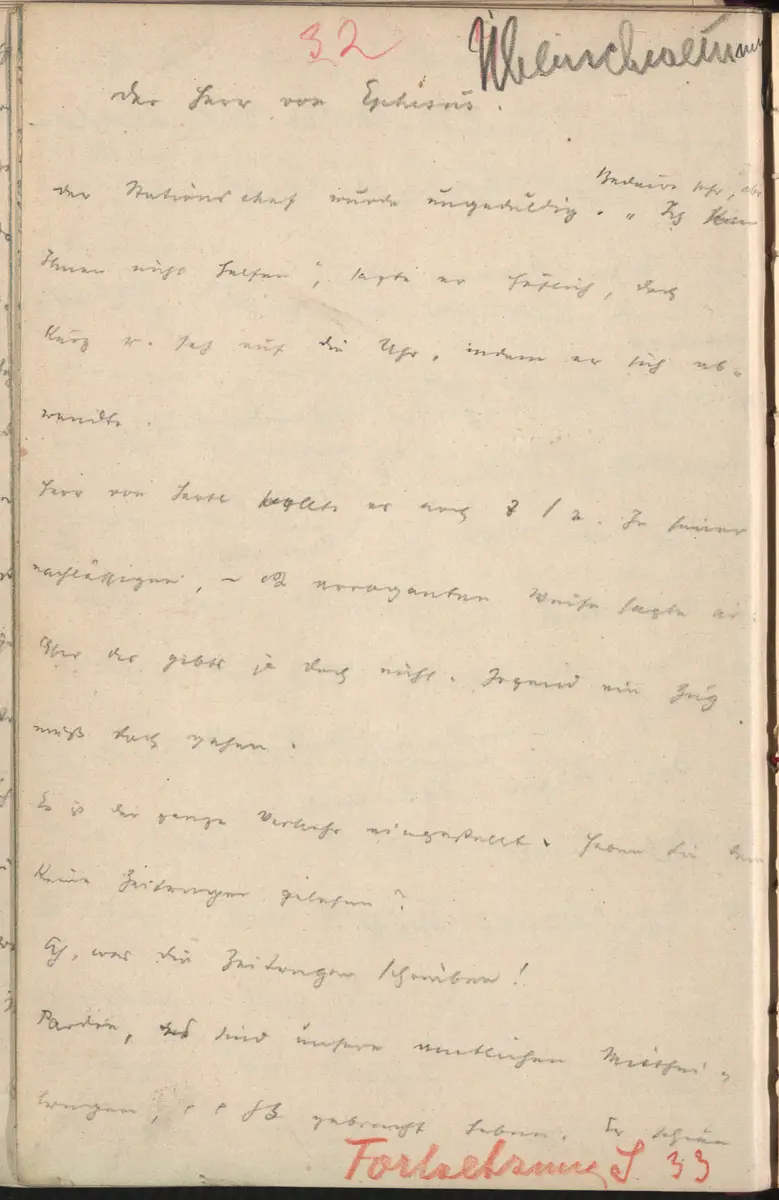 32
Der Herr von Ephesus.
Bedaure sehr, aber
Der Stationschef wurde ungeduldig. „Ich kann
Ihnen nicht helfen", sagte er höflich, doch
kurz u. sah auf die Uhr, indem er sich ab-
wendte.
Herr von er noch In seiner
nachlässigen, arroganten Weise sagte er:
Aber das gibts ja doch nicht. Irgend ein Zug
muß doch gehen.
Es ist der ganze Verkehr eingestellt. Haben Sie denn
keine Zeitungen gelesen?
Ach, was die Zeitungen schreiben!
Pardon, es sind unsere amtlichen Mitthei-
lungen, gebracht haben. Er schien
Fortsetzung S. 33